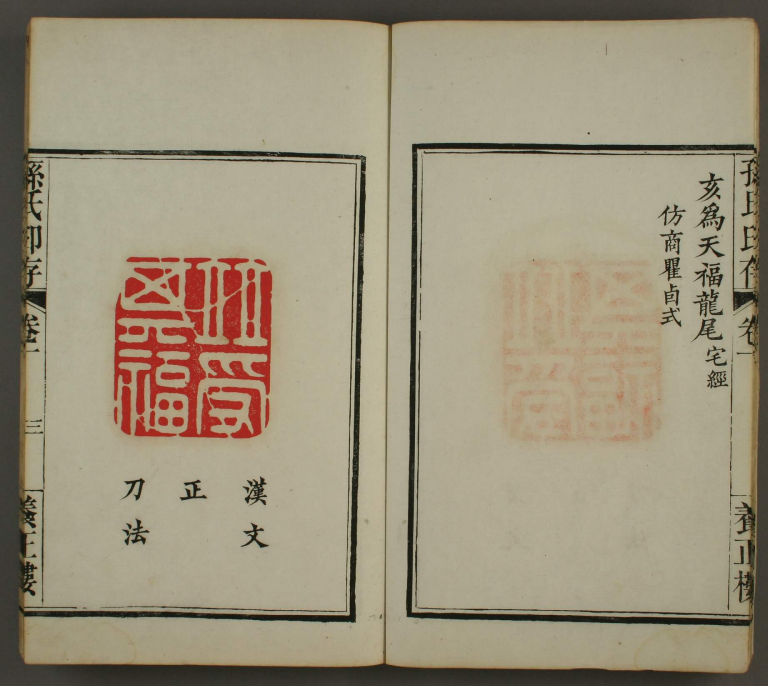 孫氏印存
卷一
養正樓
亥爲天福龍尾宅經
仿商瞿卣式
竝受
其福
漢文
正
刀法
孫氏印存
卷一
三
養正樓